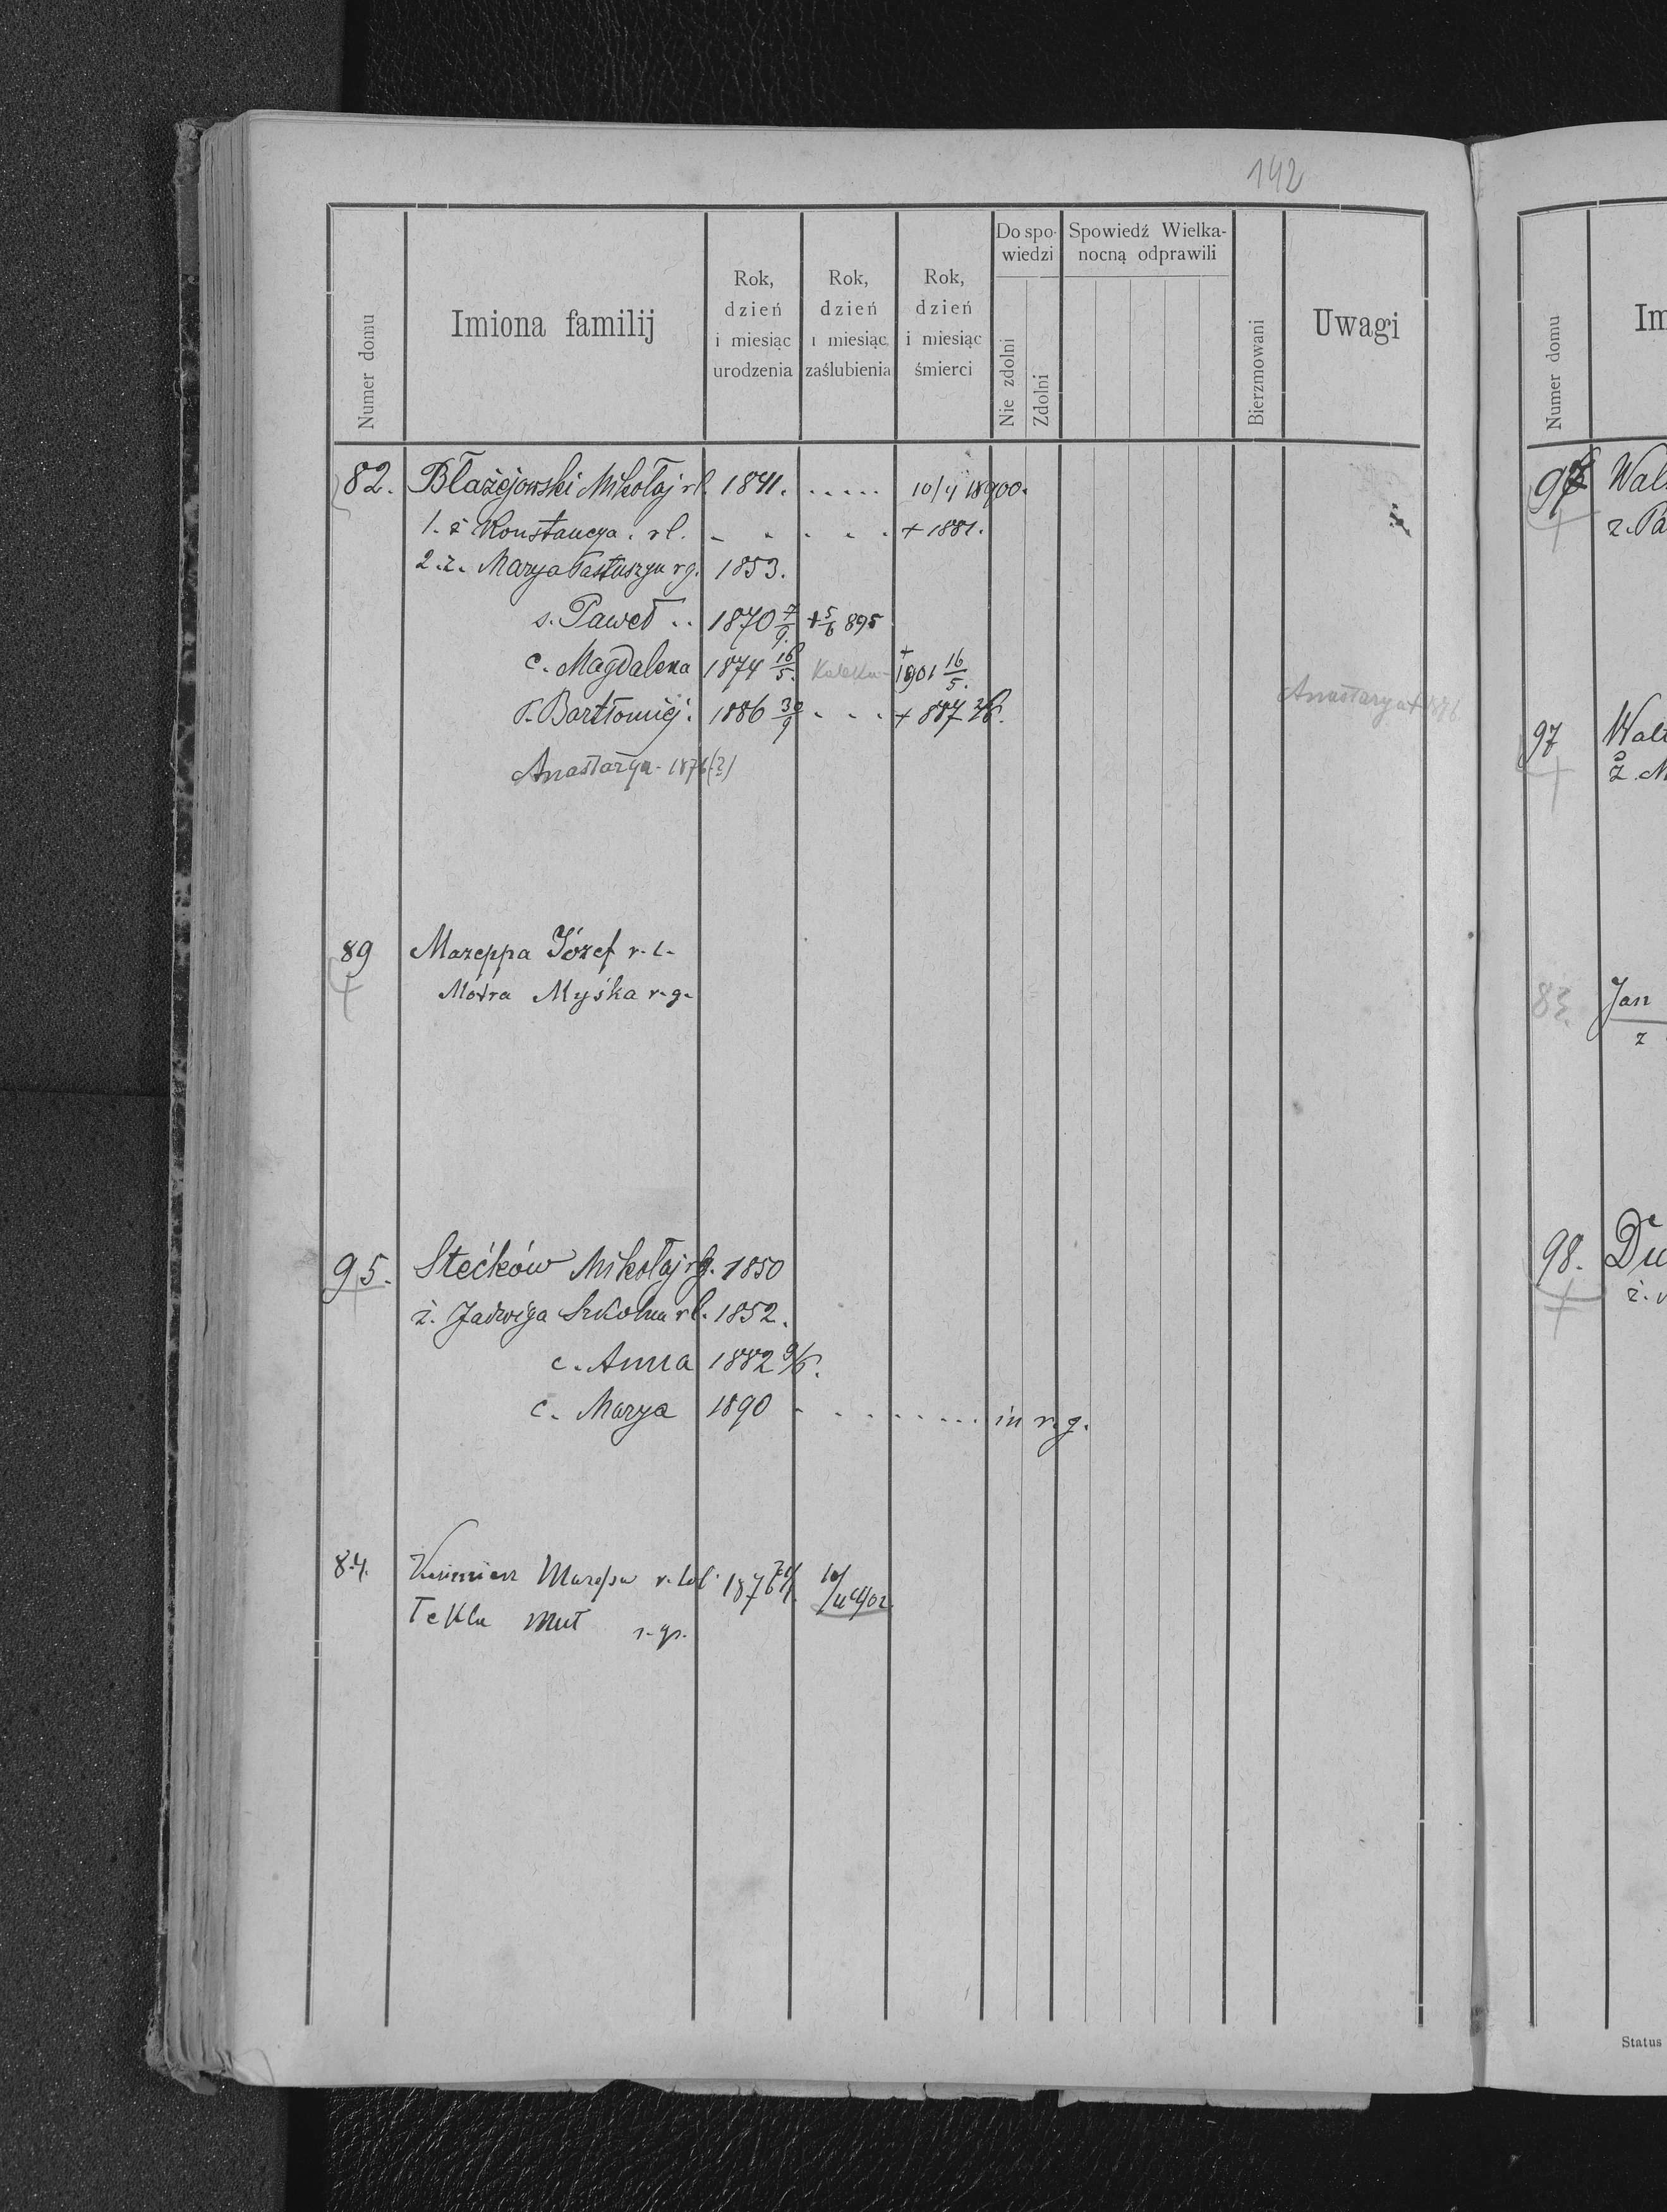 142
Numer domu
Imiona familij
Rok, dzień i miesiąc urodzenia
Rok, dzień i miesiąc zaślubienia
Rok, dzień i miesiąc śmierci
Do spowiedzi
Nie zdolni
Zdolni
Spowiedź Wielkanocną odprawili
Bierzmowani
Uwagi
82. Błażejowski Mikołaj rl. 1841. ..... 10/4 1900.
1. ż Konstancya. rl. - . . . . + 1881.
2. ż. Marya rg. 1853.
s. Paweł .. 1870 7/9. + 5/6 895
c. Magdalena 1874 16/5. Kaleka - + 1901 16/5.
s. Bartłomiej. 1886 30/9 . . . + 887
Anastazya + 1876
Anastazya - 1876 (?)
89 Mazeppa Józef r. l.
Motra Myśka r. g.
95. Stećków Mikołaj rg. 1850
ż. Jadwiga rl. 1852.
c. Anna 1882 9/6.
c. Marya 1890 - . . . . . . . . in r. g.
84. Kazimierz Mazepa r. 1876
Tekla Mut r. gr.
Numer domu
Im
96 Wal
ż. Pa
97 Wal
ż. M
83. Jan
ż
98. Du
ż.
Status